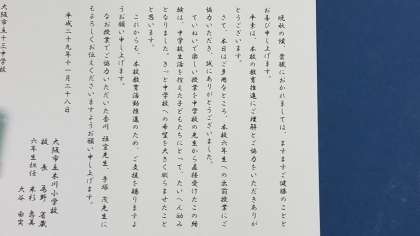 晩秋の候、皆様におかれましては、ますますご健勝のことと
お喜び申し上げます。
平素は、本校の教育推進にご理解とご協力をいただきありが
とうございます。
さて、本日はご多用なところ、本校六年生への出前授業にご
協力いただき、誠にありがとうございました。
ていねいで楽しい授業を中学校の先生から直接受けたこの経
験は、中学校生活を控えた子どもたちにとって、たいへん励み
となりました。きっと中学校への希望を大きく膨らませたこと
と思います。
これからも、本校教育活動推進のため、ご支援を賜りますよ
うお願い申し上げます。
なお授業でご協力いただいた 先生、手塚 茂先生に
もよろしくお伝えくださいますようお願い申し上げます。
平成二十九年十一月二十八日
大阪市立木川小学校
校長
六年生担任
大谷 由実
大阪市立十三中学校